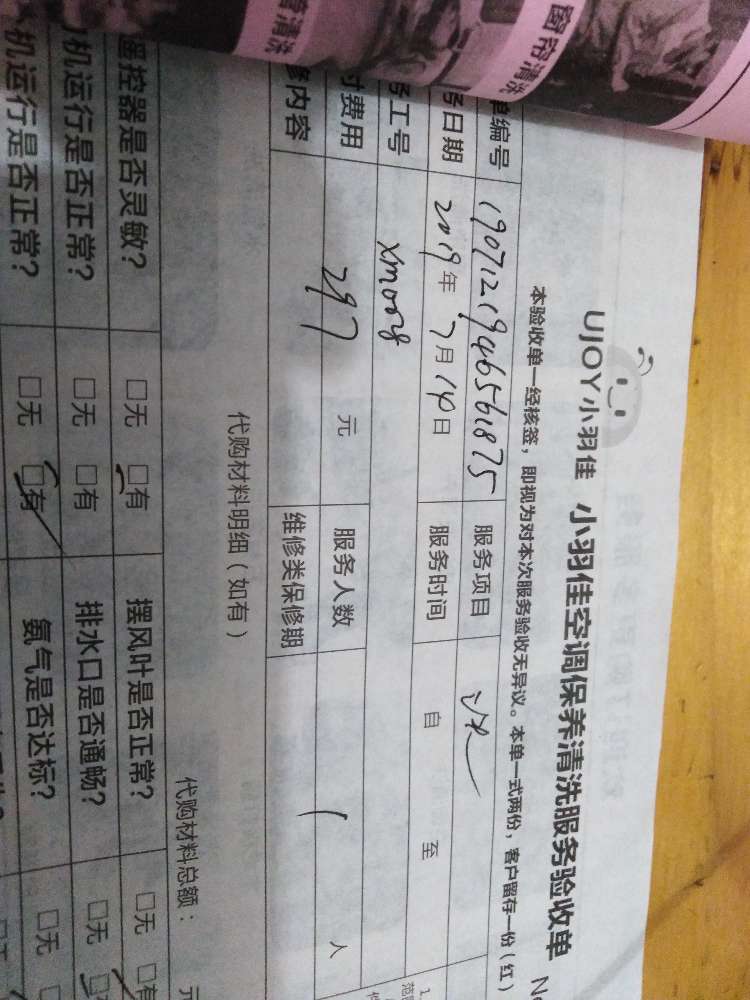 窗帘清洗
清洗
UJOY小羽佳 小羽佳空调保养清洗服务验收单
本验收单一经核签，即视为对本次服务验收无异议。本单一式两份，客户留存一份（红）
编号 服务项目
日期 2019年7月14日 服务时间 自 至
工号 xm008
费用 297 元 服务人数 1 人
内容 维修类保修期
代购材料明细（如有） 代购材料总额： 元
遥控器是否灵敏？ □无 □有 摆风叶是否正常？ □无 □有
机运行是否正常？ □无 □有 排水口是否通畅？ □无
机运行是否正常？ □无 □有 氨气是否达标？ □无